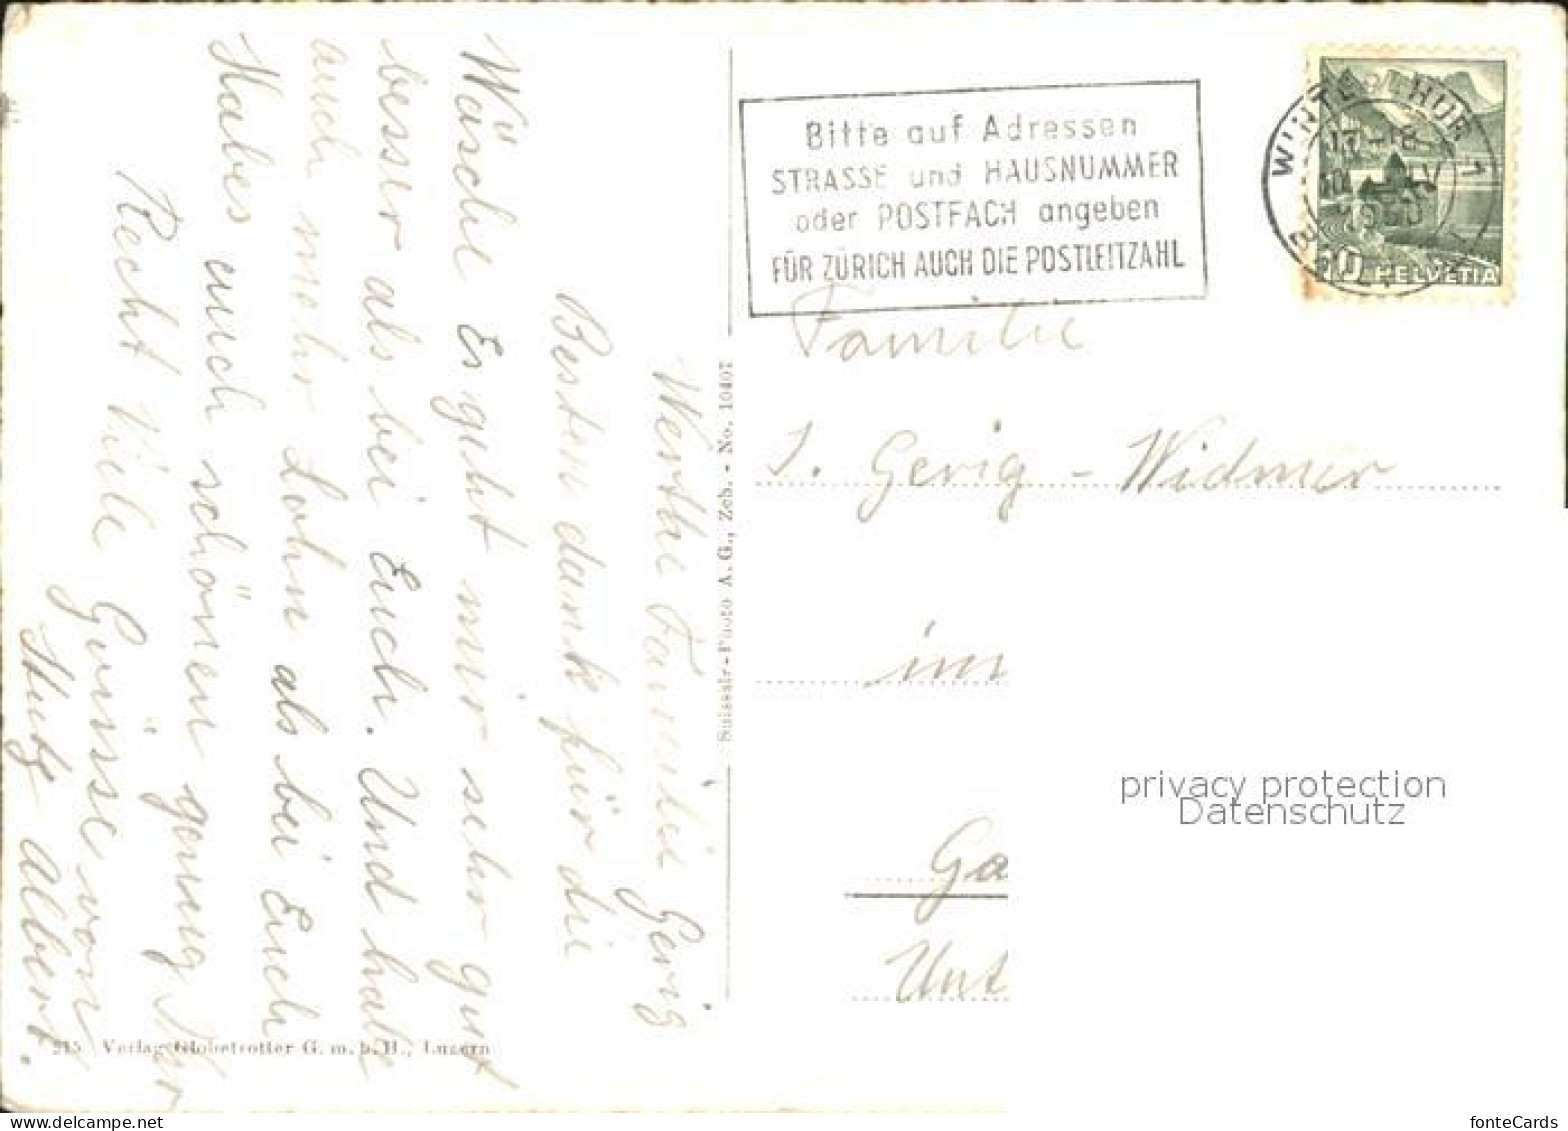 Werthe Familie Gerig
Besten dank für die
Wäsche Es geht mir sehr gut
besser als bei Euch. Und habe
auch mehr Lohn als bei Euch
Habes auch schönen genug Hier
Recht Viele Grüsse von
Stutz Albert.
215 Verlag Globetrotter G. m. b. H., Luzern
Suisstr-Photo A. G., Zch. - No. 10407
Bitte auf Adressen
STRASSE und HAUSNUMMER
oder POSTFACH angeben
FÜR ZÜRICH AUCH DIE POSTLEITZAHL
WINTERTHUR 1
17-18
IV
1950
10 HELVETIA
Familie
J. Gerig - Widmer
im
Ga
Unt
privacy protection
Datenschutz
fonteCards